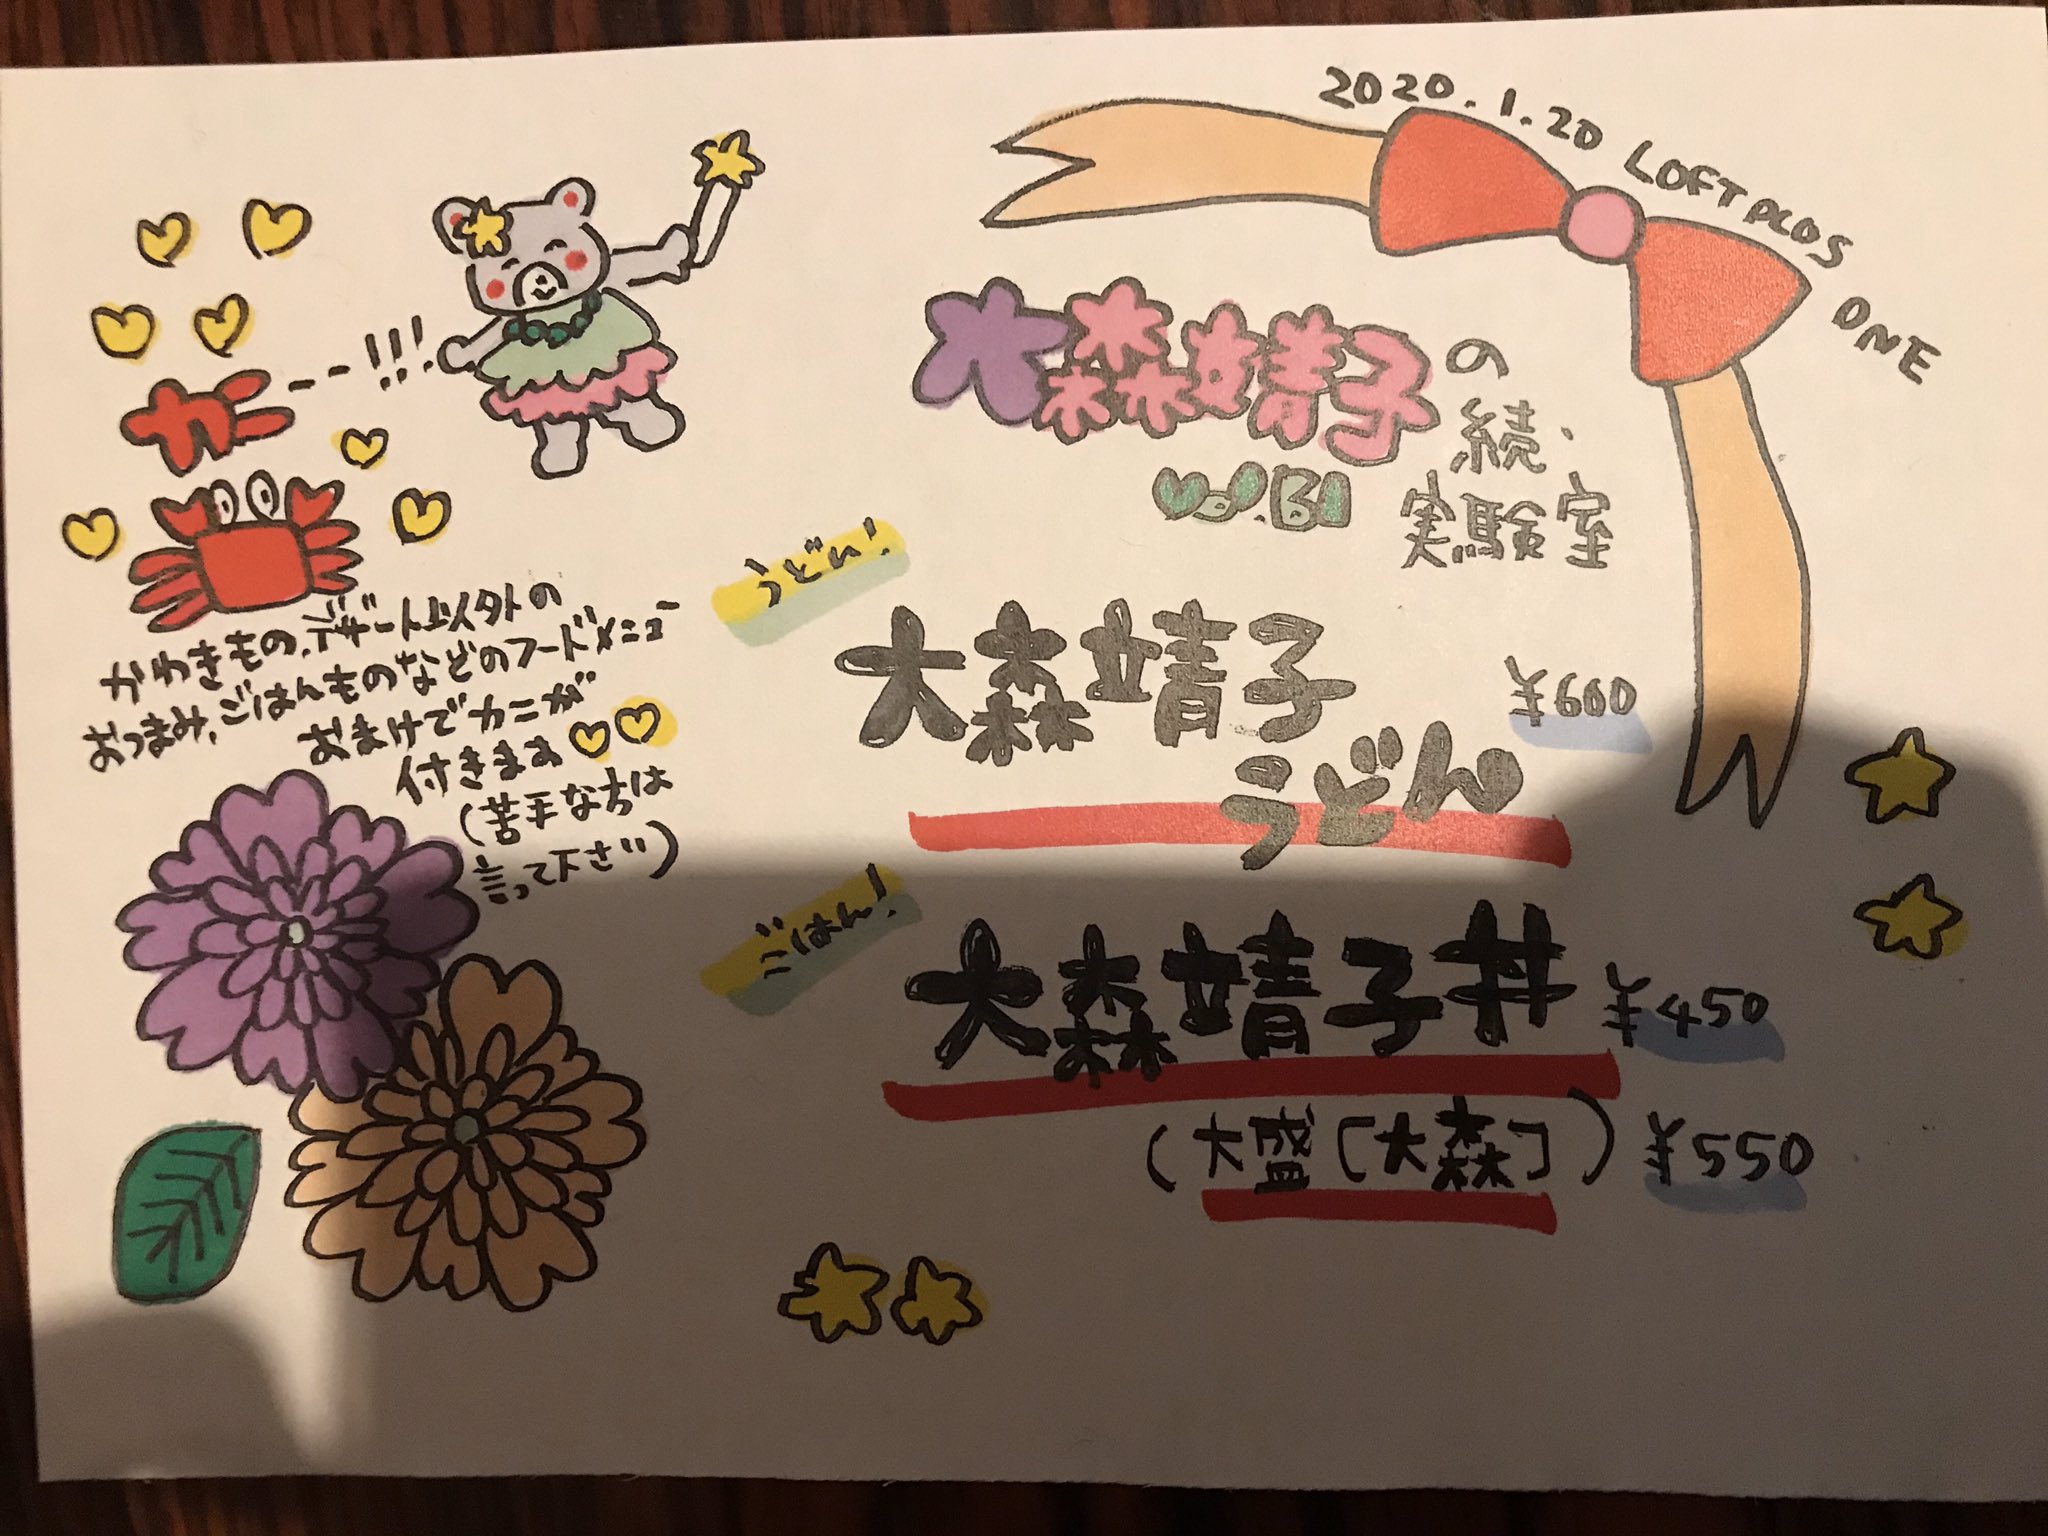 2020.1.20 LOFT PLUS ONE
大森靖子の
続・
実験室
vol.31
カニ---!!!
かわきもの、デザート以外の
おつまみ、ごはんものなどのフードメニュー
おまけでカニが
付きます
(苦手な方は
言って下さい)
うどん!
大森靖子
うどん
¥600
ごはん!
大森靖子丼 ¥450
(大盛[大森]) ¥550